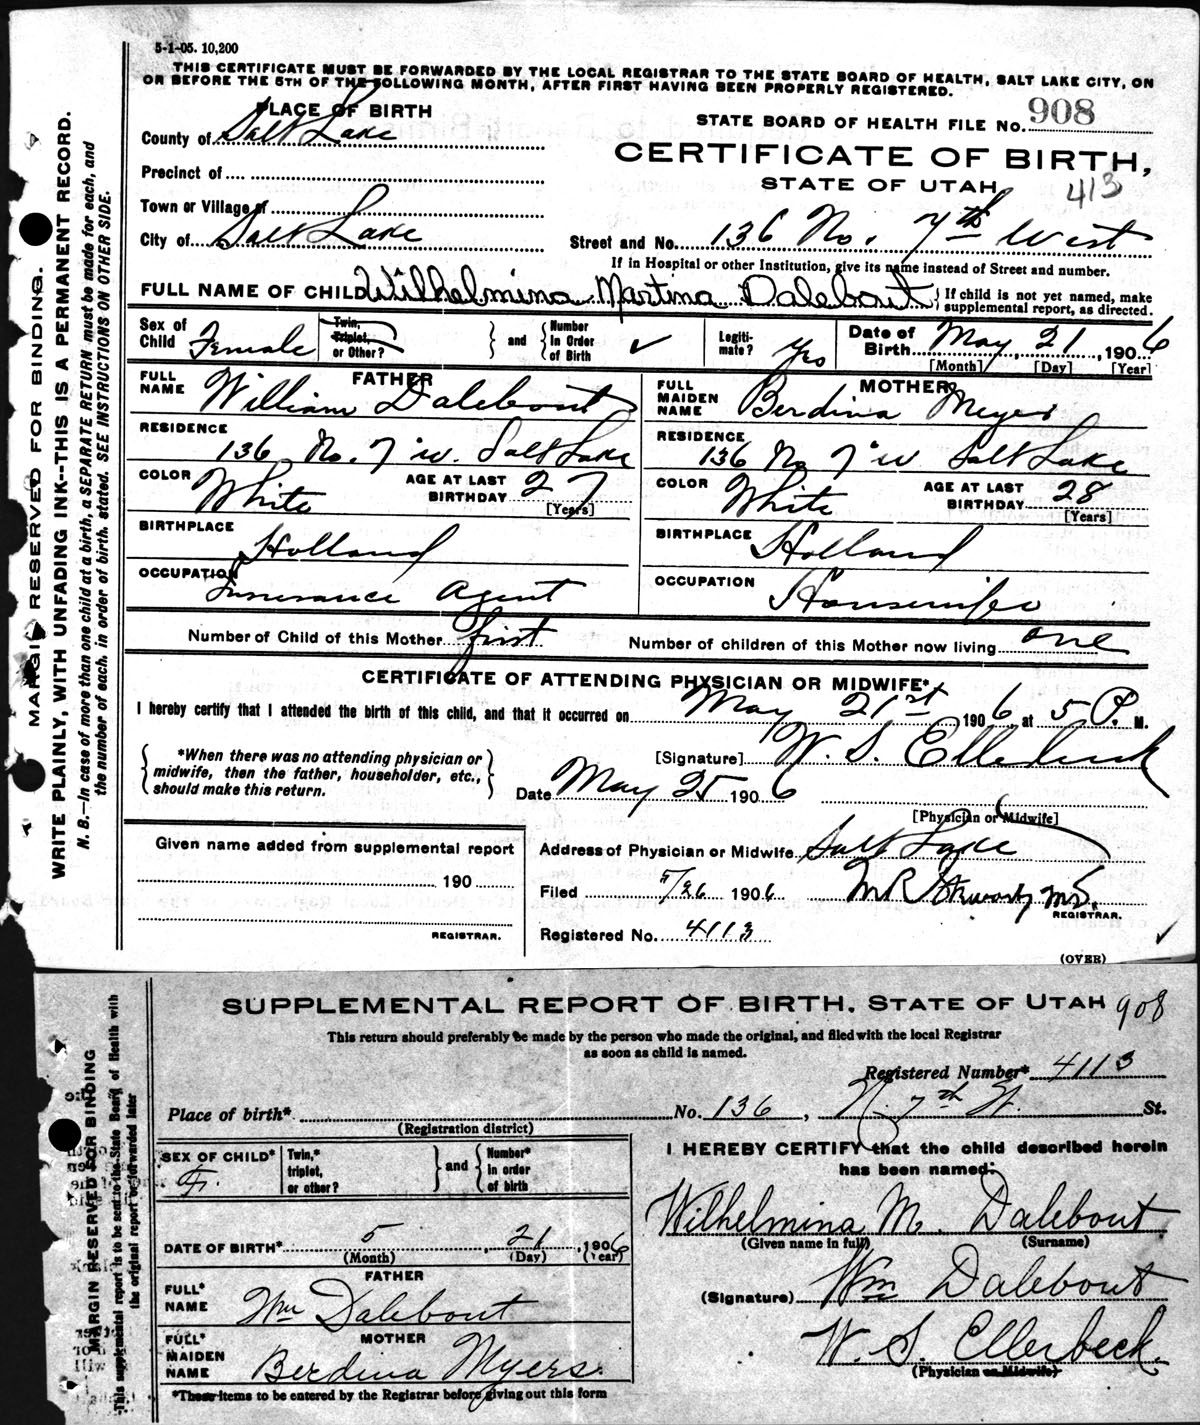 5-1-05. 10,200
THIS CERTIFICATE MUST BE FORWARDED BY THE LOCAL REGISTRAR TO THE STATE BOARD OF HEALTH, SALT LAKE CITY, ON
OR BEFORE THE 5TH OF THE FOLLOWING MONTH, AFTER FIRST HAVING BEEN PROPERLY REGISTERED.
PLACE OF BIRTH
STATE BOARD OF HEALTH FILE No. 908
County of Salt Lake
CERTIFICATE OF BIRTH,
Precinct of
STATE OF UTAH
413
Town or Village of
City of Salt Lake
Street and No. 136 No. 7th West
If in Hospital or other Institution, give its name instead of Street and number.
FULL NAME OF CHILD Wilhelmina Martina Dalebout } If child is not yet named, make supplemental report, as directed.
Sex of Child Female Twin, Triplet, or Other? } and { Number In Order of Birth ✓ Legitimate? Yes Date of Birth May, 21, 1906
[Month] [Day] [Year]
FATHER
FULL NAME William Dalebout
RESIDENCE 136 No. 7 W. Salt Lake
COLOR White AGE AT LAST BIRTHDAY 27
[Years]
BIRTHPLACE Holland
OCCUPATION Insurance Agent
MOTHER
FULL MAIDEN NAME Berdina Meyers
RESIDENCE 136 No 7 W Salt Lake
COLOR White AGE AT LAST BIRTHDAY 28
[Years]
BIRTHPLACE Holland
OCCUPATION Housewife
Number of Child of this Mother first Number of children of this Mother now living one
CERTIFICATE OF ATTENDING PHYSICIAN OR MIDWIFE*
I hereby certify that I attended the birth of this child, and that it occurred on May 21st 1906, at 5 P. M.
{ *When there was no attending physician or midwife, then the father, householder, etc., should make this return. }
[Signature] W. S. Ellerbeck
Date May 25 1906
[Physician or Midwife]
Given name added from supplemental report
190
REGISTRAR.
Address of Physician or Midwife Salt Lake
Filed 5/26 1906 M.D.
REGISTRAR.
Registered No. 4113
(OVER)
MARGIN RESERVED FOR BINDING.
WRITE PLAINLY, WITH UNFADING INK--THIS IS A PERMANENT RECORD.
N. B.--In case of more than one child at a birth, a SEPARATE RETURN must be made for each, and
the number of each, in order of birth, stated. SEE INSTRUCTIONS ON OTHER SIDE.
SUPPLEMENTAL REPORT OF BIRTH, STATE OF UTAH 908
This return should preferably be made by the person who made the original, and filed with the local Registrar
as soon as child is named.
Registered Number* 4113
Place of birth* No. 136, N. 7th W. St.
(Registration district)
SEX OF CHILD* F. Twin,* triplet, or other? } and { Number* in order of birth
DATE OF BIRTH* 5, 21, 1906
(Month) (Day) (Year)
FATHER
FULL* NAME Wm Dalebout
MOTHER
FULL* MAIDEN NAME Berdina Myers.
*These items to be entered by the Registrar before giving out this form
I HEREBY CERTIFY that the child described herein
has been named:
Wilhelmina M. Dalebout
(Given name in full) (Surname)
(Signature) Wm Dalebout
W. S. Ellerbeck.
(Physician or Midwife)
MARGIN RESERVED FOR BINDING
This supplemental report is to be sent to the State Board of Health with
the original report or forwarded later